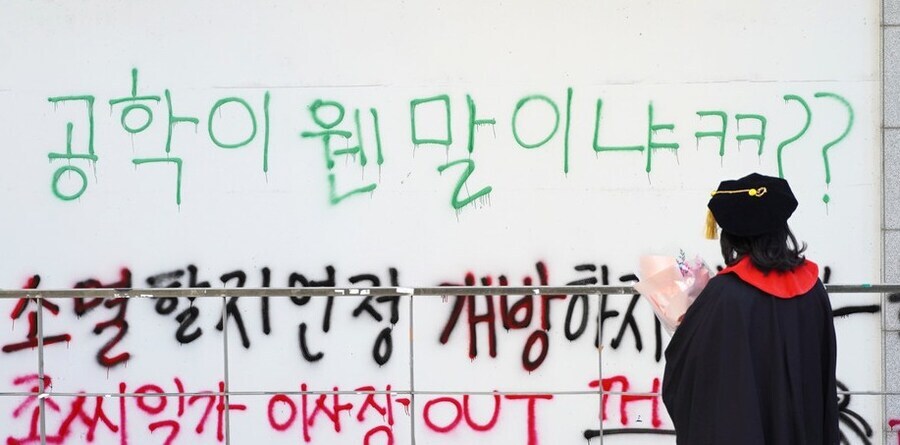 공학이 웬 말이냐ㅋㅋ??
소멸할지언정 개방하지
조씨일가 이사장 OUT